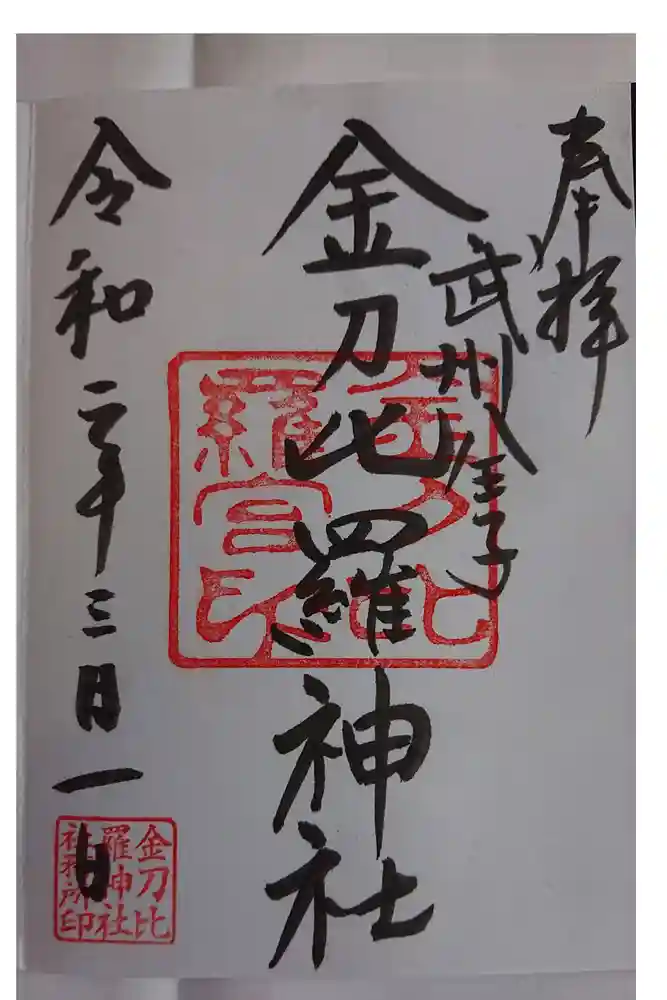 奉拝
武州八王子
金刀比羅神社
金刀比羅宮印
令和二年三月一日
金刀比羅神社社務所印